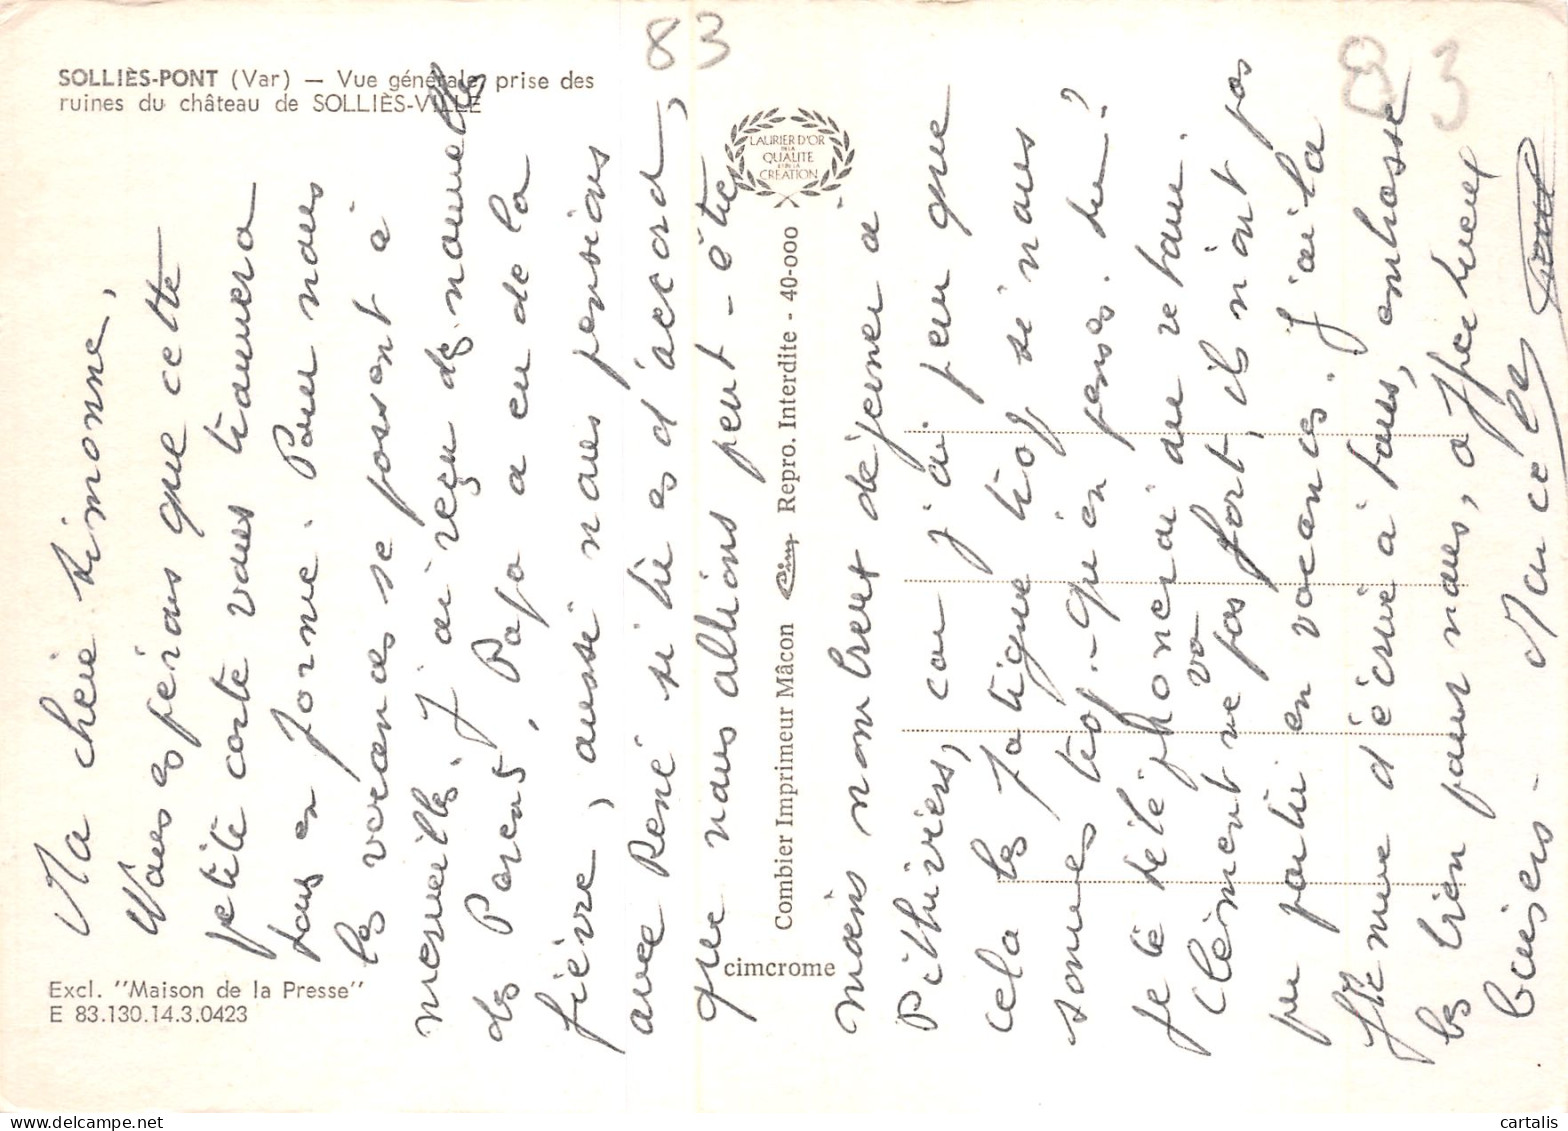 SOLLIÈS-PONT (Var) — Vue générale, prise des
ruines du château de SOLLIÈS-VILLE
83
83
LAURIER D'OR
DE LA
QUALITE
ET DE LA
CREATION
Combier Imprimeur Mâcon Cim Repro. Interdite - 40-000
cimcrome
Excl. "Maison de la Presse"
E 83.130.14.3.0423
Ma chère Simonne,
Nous espérons que cette
petite carte vous trouvera
tous en forme. Pour nous
les vacances se passent à
merveilles. J'ai reçu des nouvelles
des Parents, Papa a eu de la
fièvre, aussi nous pensions
avec René si tu es d'accord,
que nous allions peut-être
moins nombreux déjeuner à
Pithiviers, car j'ai peur que
cela les fatigue trop si nous
sommes trop - qu'en penses-tu?
je te téléphonerai au retour.
Clément ne va pas fort, il n'ont pas
pu partir en vacances. J'ai la
flème d'écrire à tous, embrasse
les bien pour nous, affectueux
baisers - Marcelle
cartalis